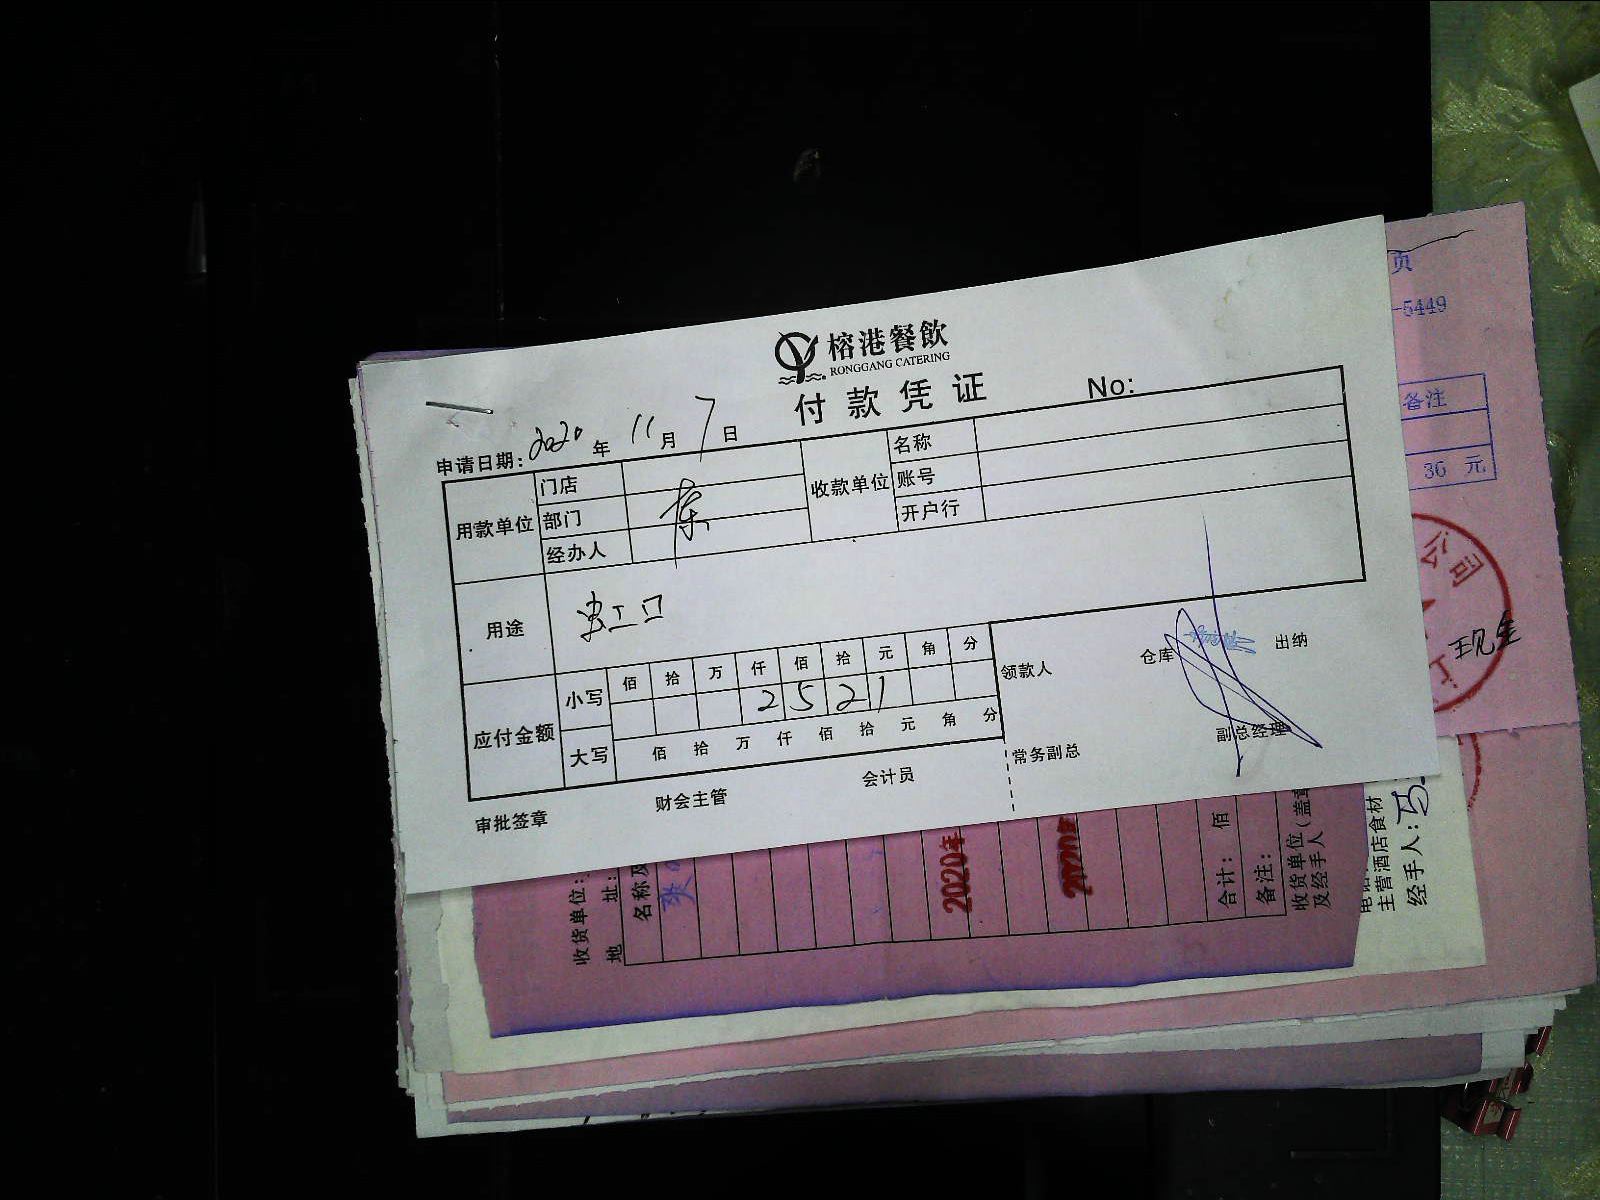 榕港餐飲
RONGGANG CATERING
付款凭证 No:
申请日期: 2020 年 11 月 7 日
用款单位 门店 收款单位 名称
部门 账号
经办人 开户行
用途
应付金额 小写 佰 拾 万 仟 佰 拾 元 角 分
2 5 2 1
大写 佰 拾 万 仟 佰 拾 元 角 分
领款人 仓库 出纳
常务副总 副总经理
审批签章 财会主管 会计员
页
-5449
备注
36 元
公司
江
现金
收货单位:
地 址:
名称及
2020年
2020年
合计: 佰
备注:
收货单位(盖章
及经手人
主营酒店食材
经手人: